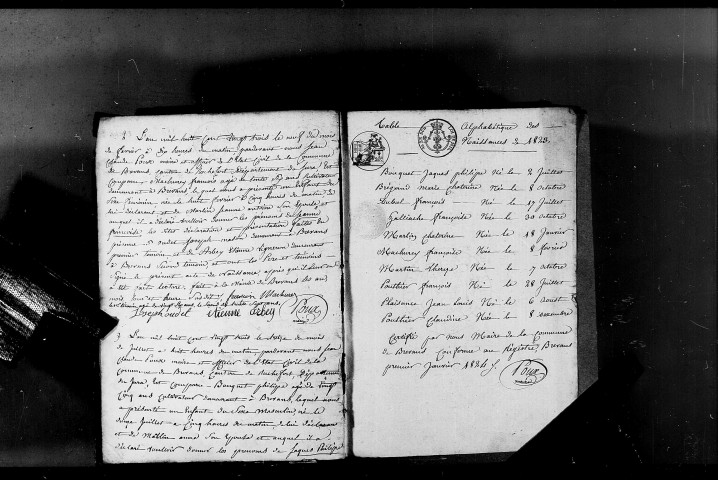 2. L'an mil huit cent vingt trois le neuf du mois
de fevrier à dix heures du matin pardevant nous Jean
Claude Poux maire et officier de l'Etat Civil de la Commune
de Brevans, canton de Rochefort Département du Jura, Est
Comparu Machurey françois agé de trente ans Cultivateur
demeurant à Brevans, lequel nous a présenté un Enfant du
Sexe féminin née le huit fevrier à Cinq heures du matin, de
lui déclarant et de Martin Jeanne son Epouse, et
auquel il a déclaré vouloir donner les prénoms de
françoise, les dites déclaration et présentation faites en
présence d'oudet Joseph demeurant à Brevans
premier temoin et de Arbey Etienne vigneron demeurant
à Brevans second temoin, et ont les Pere et temoins
signé le present acte de Naissance, après qu'il leur en
a été fait lecture, fait à la Mairie de Brevans les an
mois jour et heure susdits françois Machurey
Joseph oudet etienne arbey Poux
3. L'an mil huit Cent Vingt trois le treize du mois
de Juillet à huit heures du matin pardevant nous Jean
Claude Poux maire et officier de l'Etat Civil de la
Commune de Brevans Canton de Rochefort Département
du Jura, est Comparu Bouquet philipe agé de Vingt
Cinq ans Cultivateur demeurant à Brevans, lequel nous
a présenté un Enfant du Sexe Masculin, né le
Juillet à Cinq heures du matin, de lui déclarant
et de anne Son Epouse et auquel il a
déclaré vouloir donner les prénoms de Jaques Philipe
Table Alphabétique des
Naissances de 1823.
Bouquet Jaques philipe Né le 2 Juillet
Brégand Marie Chaterine Née le 8 octobre
Dubul françois Né le 17 Juillet
Galliache françoise Née le 30 octobre
Martin Chaterine Née le 18 Janvier
Machurey françoise Née le 8 fevrier
Martin Therese Née le 7 octobre
Pouthier françois Né le 28 Juillet
Plaisance Jean Louis Né le 6 aoust
Pouthier Claudine Née le 8 novembre
Certifié par nous Maire de la Commune
de Brevans Conforme au Registre, Brevans
premier Janvier 1824
Poux
maire